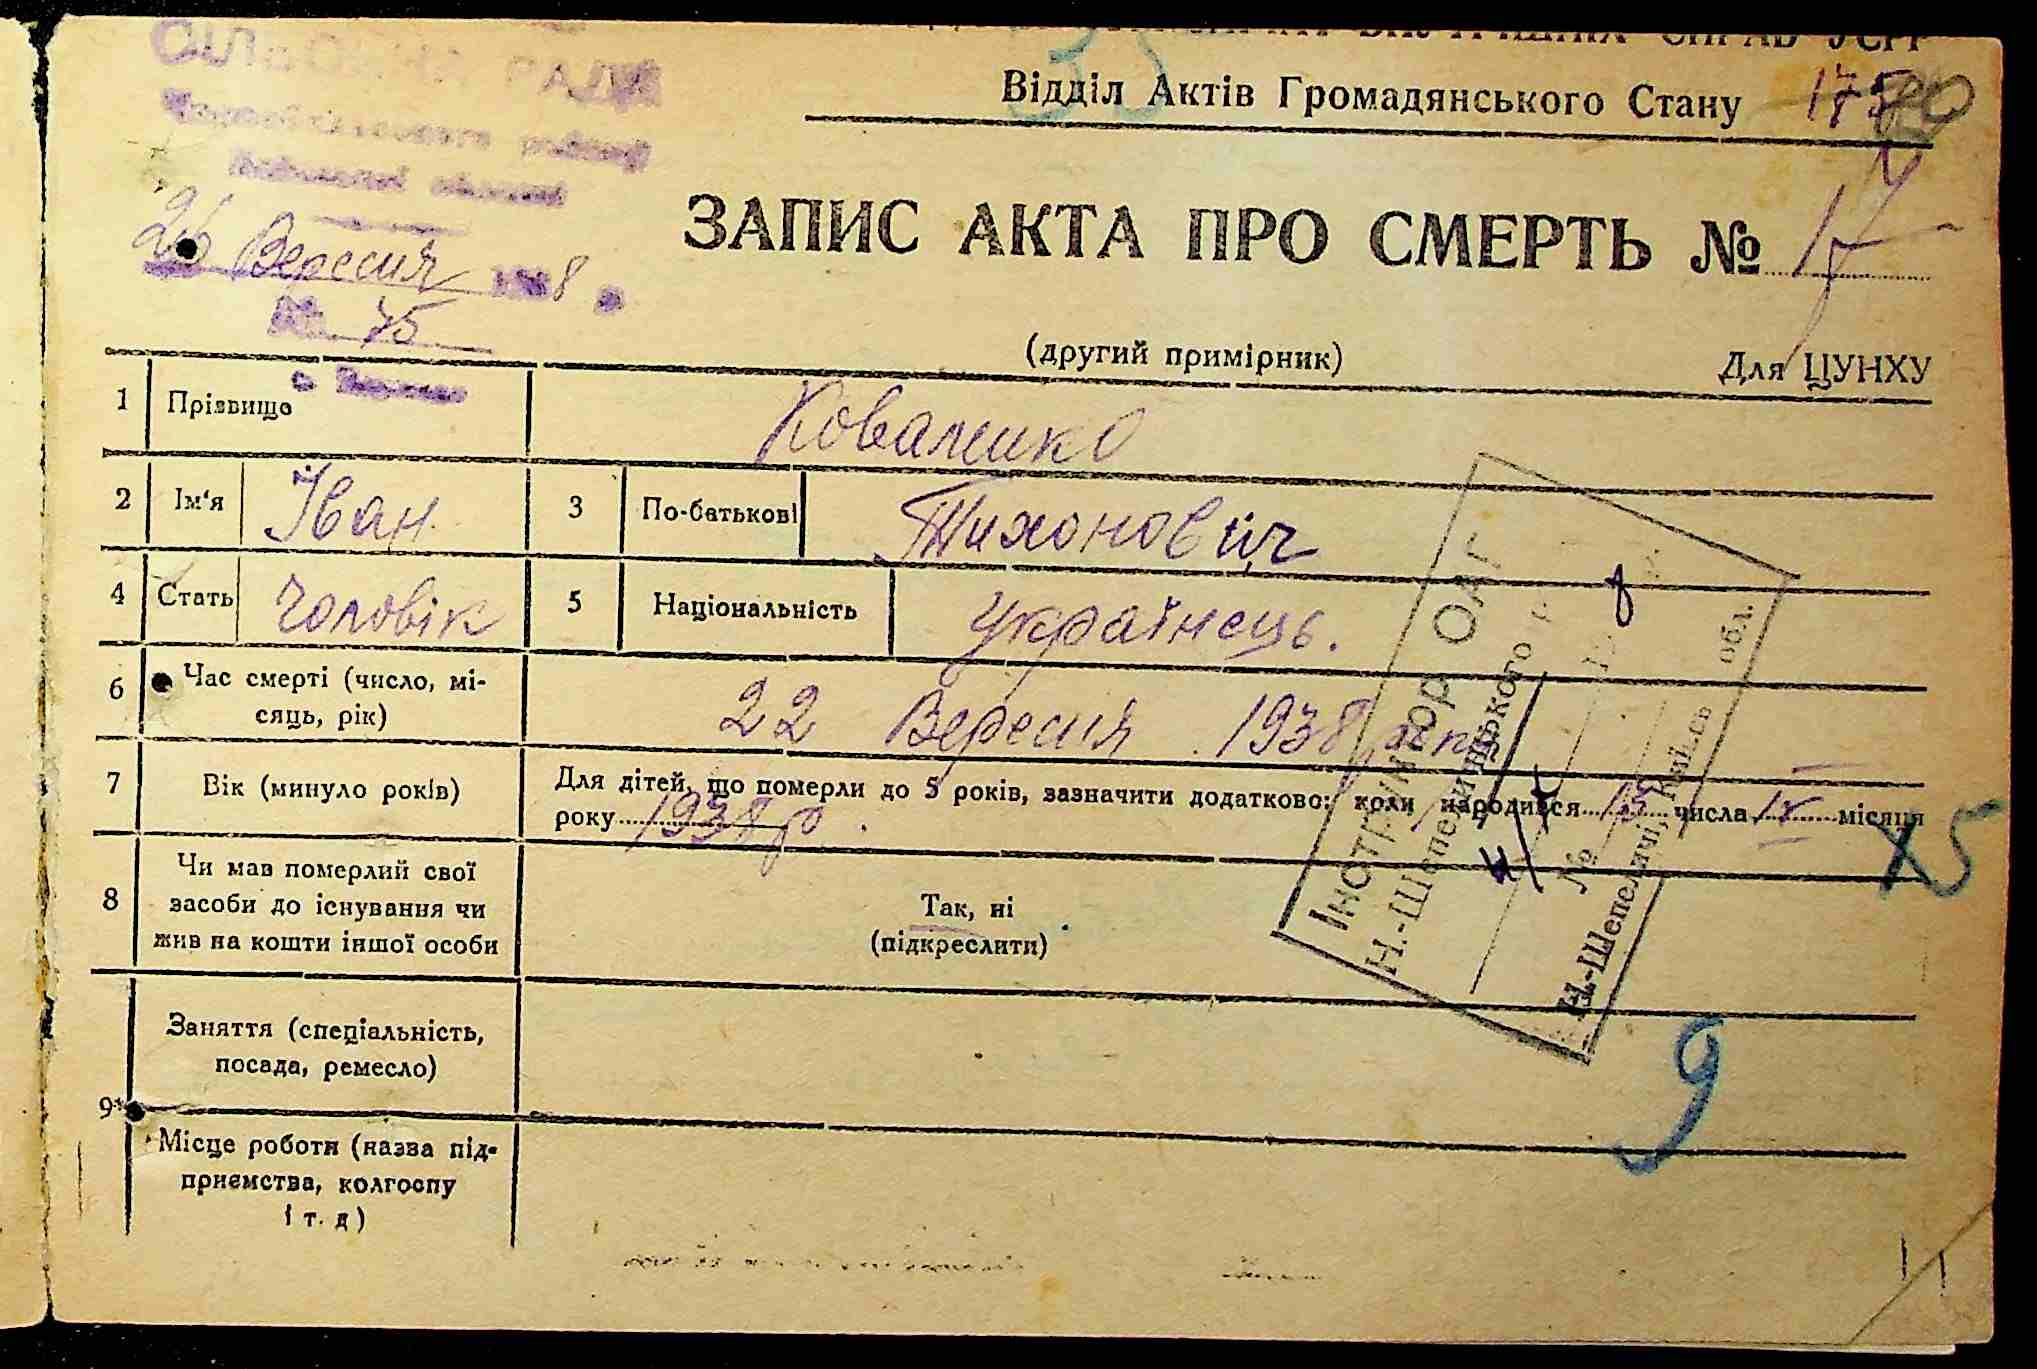 СІЛЬСЬКА РАДА
Відділ Актів Громадянського Стану 175
26 Вересня 1938 р.
№ 75
ЗАПИС АКТА ПРО СМЕРТЬ № 17
(другий примірник) Для ЦУНХУ
1 Прізвище Коваленко
2 Ім'я Іван 3 По-батькові Тихонович
4 Стать Чоловік 5 Національність Українець.
6 Час смерті (число, мі-
сяць, рік) 22 Вересня 1938
7 Вік (минуло років) Для дітей, що померли до 5 років, зазначити додатково: коли народився 15 числа IX місяця
року 1938 р.
8 Чи мав померлий свої
засоби до існування чи
жив на кошти іншої особи
Так, ні
(підкреслити)
9 Заняття (спеціальність,
посада, ремесло)
Місце роботи (назва під-
приємства, колгоспу
і т. д)
Інструктор ОАГ
Н.-Шепелицького р
№
Н.-Шепеличі, Київськ обл.
Х5
9